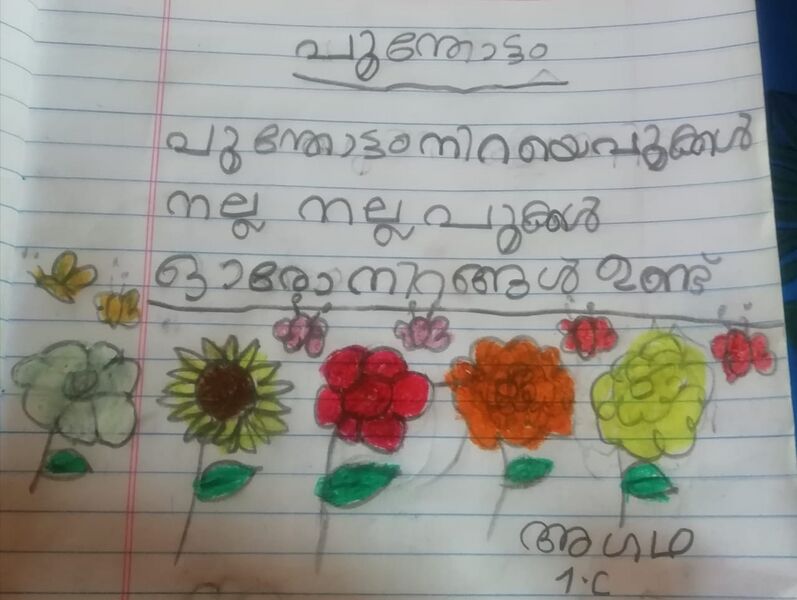 പൂന്തോട്ടം
പൂന്തോട്ടം നിറയെ പൂക്കൾ
നല്ല നല്ല പൂക്കൾ
ഓരോ നിറങ്ങൾ ഉണ്ട്
അഗഥ
1.C